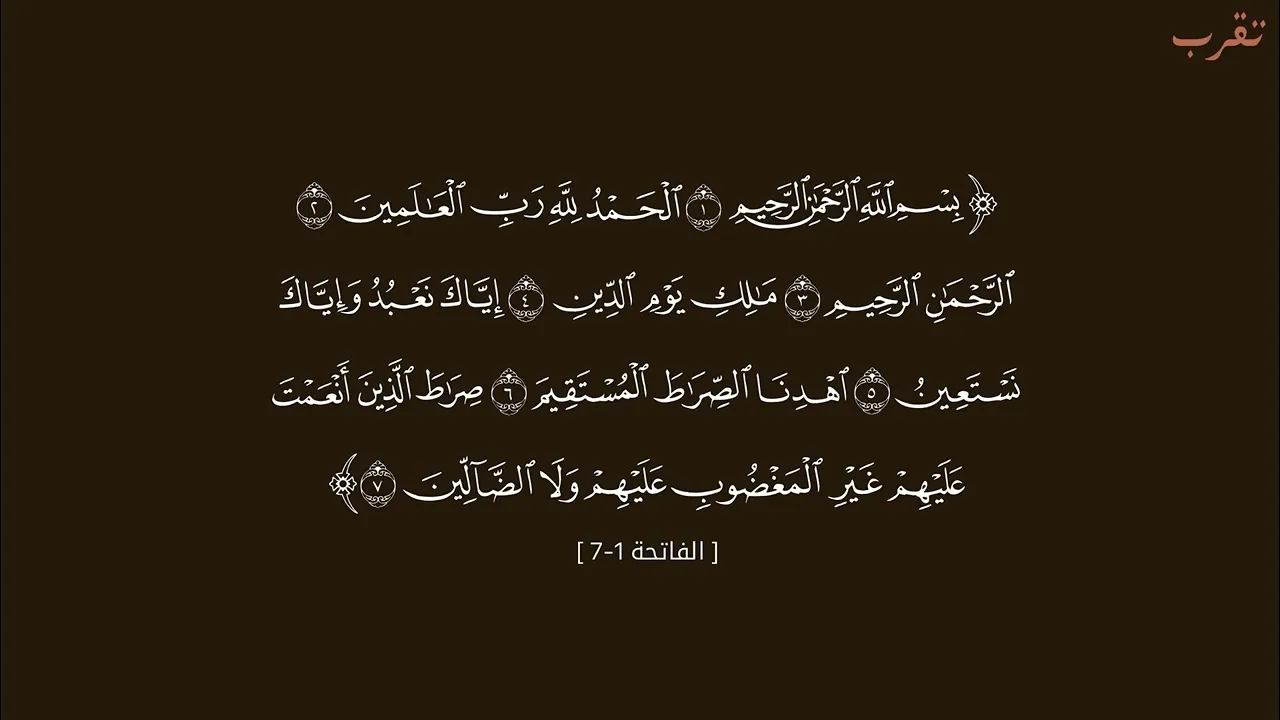 تقرب
﴿بِسْمِ ٱللَّهِ ٱلرَّحْمَٰنِ ٱلرَّحِيمِ ١ ٱلْحَمْدُ لِلَّهِ رَبِّ ٱلْعَٰلَمِينَ ٢
ٱلرَّحْمَٰنِ ٱلرَّحِيمِ ٣ مَٰلِكِ يَوْمِ ٱلدِّينِ ٤ إِيَّاكَ نَعْبُدُ وَإِيَّاكَ
نَسْتَعِينُ ٥ ٱهْدِنَا ٱلصِّرَٰطَ ٱلْمُسْتَقِيمَ ٦ صِرَٰطَ ٱلَّذِينَ أَنْعَمْتَ
عَلَيْهِمْ غَيْرِ ٱلْمَغْضُوبِ عَلَيْهِمْ وَلَا ٱلضَّآلِّينَ ٧﴾
[ الفاتحة 1-7 ]